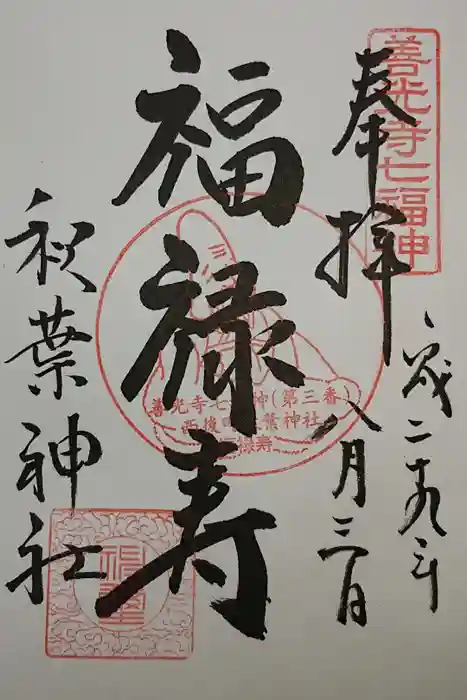 善光寺七福神
奉拝
平成二十九年
八月三日
福禄寿
善光寺七福神(第三番)
西後町秋葉神社
福禄寿
秋葉神社